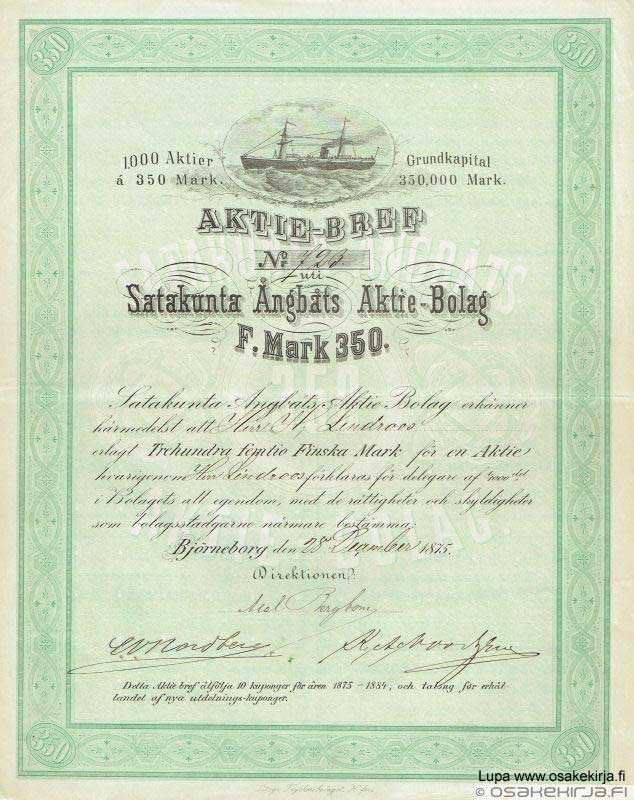 350 350
1,000 Aktier Grundkapital
á 350 Mark. 350,000 Mark.
AKTIE-BREF
No 793
uti
Satakunta Ångbåts Aktie-Bolag
F. Mark 350.
Satakunta Ångbåts Aktie Bolag erkänner
härmedelst att Herr Lindroos
erlagt Trehundra femtio Finska Mark för en Aktie
hvarigenom Herr Lindroos förklaras för delegare af 1/1000 del
i Bolagets all egendom, med de rättigheter och skyldigheter
som bolagsstadgarne närmare bestämma;
Björneborg den 28 December 1875.
Direktionen:
Axel Bergbom
CW Nordberg
Detta Aktie bref åtfölja 10 kuponger för åren 1875 - 1884, och talong för erhål-
landet af nya utdelnings-kuponger.
350 350
Lupa www.osakekirja.fi
© OSAKEKIRJA.FI